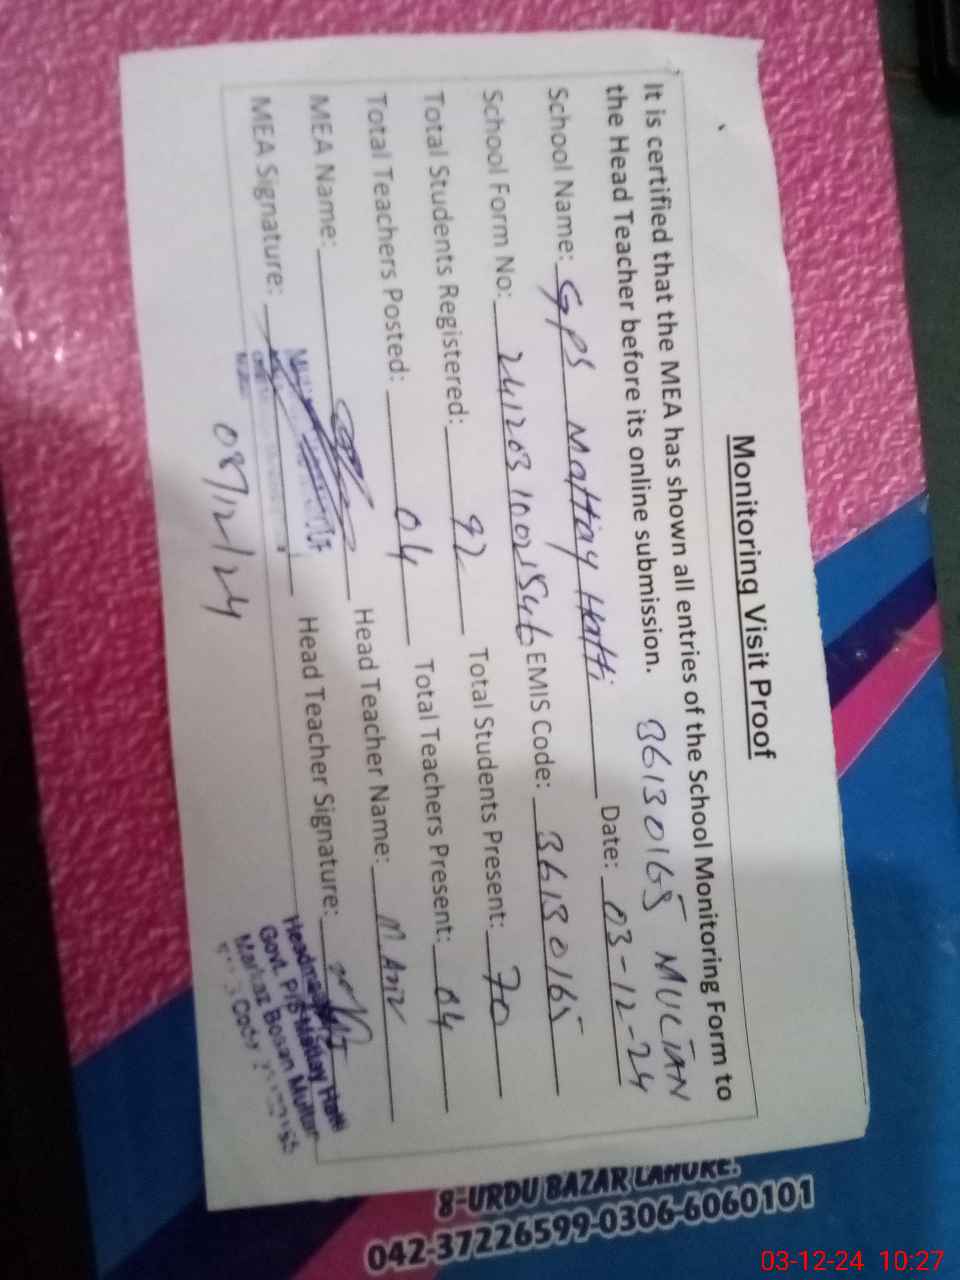 Monitoring Visit Proof
It is certified that the MEA has shown all entries of the School Monitoring Form to
the Head Teacher before its online submission. 36130165 MULTAN
School Name: GPS Mattiay Hatti Date: 03-12-24
School Form No: 24120310021546 EMIS Code: 36130165
Total Students Registered: 92 Total Students Present: 70
Total Teachers Posted: 04 Total Teachers Present: 04
MEA Name: Head Teacher Name: M. Aniz
MEA Signature: Head Teacher Signature:
Govt. P/S Mattiay Hatti
Markaz Bosan Multan
8-URDU BAZAR LAHORE.
042-37226599-0306-6060101
03-12-24 10:27